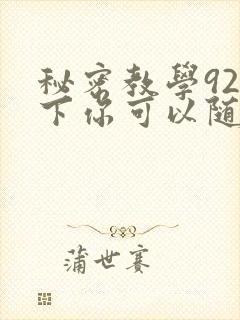 秘密教學92
下你可以随
蒲世赛